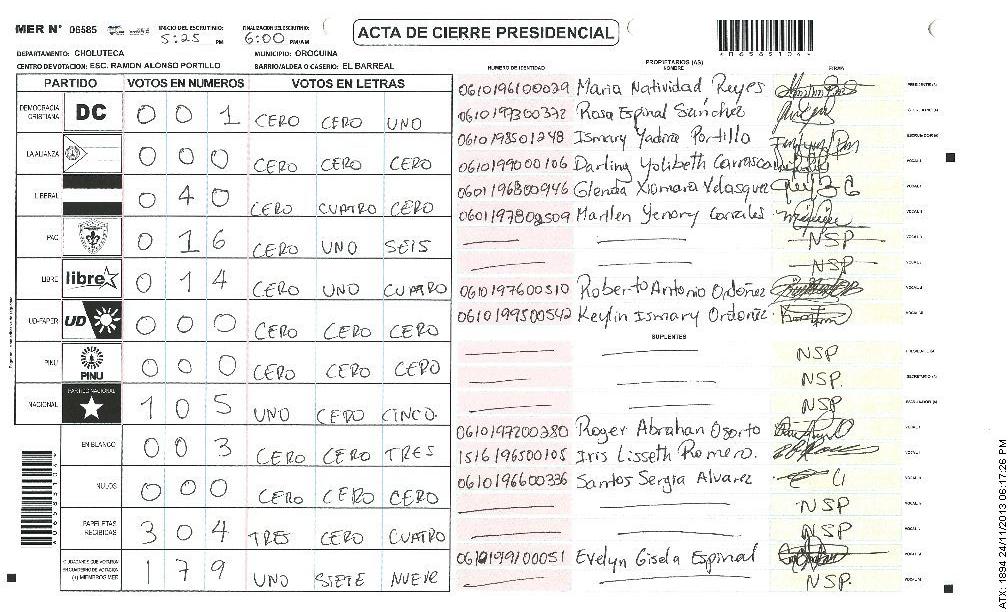 MER N° 06585 INICIO DEL ESCRUTINIO: 5:25 PM FINALIZACION DEL ESCRUTINIO: 6:00 PM/AM
ACTA DE CIERRE PRESIDENCIAL
DEPARTAMENTO: CHOLUTECA MUNICIPIO: OROCUINA
CENTRO DE VOTACION: ESC. RAMON ALONSO PORTILLO BARRIO/ALDEA O CASERIO: EL BARREAL
PARTIDO VOTOS EN NUMEROS VOTOS EN LETRAS
DEMOCRACIA CRISTIANA DC 0 0 1 CERO CERO UNO
LA ALIANZA 0 0 0 CERO CERO CERO
LIBERAL 0 4 0 CERO CUATRO CERO
PAC 0 1 6 CERO UNO SEIS
LIBRE libre 0 1 4 CERO UNO CUATRO
UD-FAPER UD 0 0 0 CERO CERO CERO
PINU PINU 0 0 0 CERO CERO CERO
NACIONAL PARTIDO NACIONAL 1 0 5 UNO CERO CINCO.
EN BLANCO 0 0 3 CERO CERO TRES
NULOS 0 0 0 CERO CERO CERO
PAPELETAS RECIBIDAS 3 0 4 TRES CERO CUATRO
CIUDADANOS QUE VOTARON EN CUADERNO DE VOTACION (+) MIEMBROS MER 1 7 9 UNO SIETE NUEVE
PROPIETARIOS (AS)
NUMERO DE IDENTIDAD NOMBRE FIRMA
0610196100029 Maria Natividad Reyes PRESIDENTE (A)
0610197300372 Rosa Espinal Sánchez
0610198501248 Ismary Yadira Portillo ESCRUTADOR (A)
0610199000106 Darling Yolibeth Carrasco VOCAL I
0601196800946 Glenda Xiomara Velasquez
0601197802509 Marilen Yenory Gonzales
NSP
NSP
0610197600510 Roberto Antonio Ordoñez
0610199500542 Keylin Ismary Ordoñez
SUPLENTES
NSP PRESIDENTE (A)
NSP. SECRETARIO (A)
NSP ESCRUTADOR (A)
0610197200280 Roger Abrahan Osorto
1516196500105 Iris Lisseth Romero.
0610196600336 Santos Sergia Alvarez
NSP
NSP
0610199100051 Evelyn Gisela Espinal
NSP.
ATX: 1894 24/11/2013 06:17:26 PM